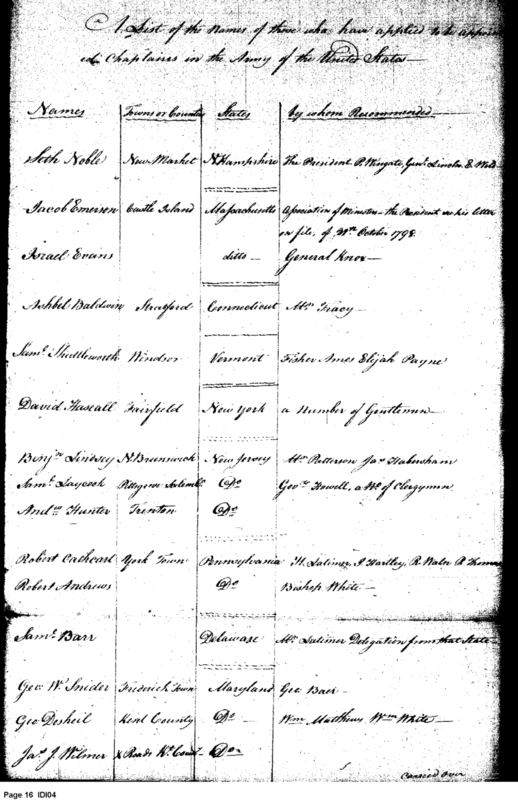 A List of the Names of those who have applied to be appoint
ed Chaplains in the Army of the United States—
Names Towns or County States by whom Recommended—
Seth Noble New Market N Hampshire The President P. Wingate, Genl. Lincoln, E.
Jacob Emerson Castle Island Massachusetts Association of Ministers—the President see his letter
on file, of October 1798
Israel Evans ditto— General Knox—
Ashbel Baldwin Stratford Connecticut Mr. Tracy—
Saml. Shuttleworth Windsor Vermont Fisher Ames Elijah Payne
David Hascall Fairfield New York a Number of Gentlemen—
Benjn. Lindsey N. Brunswick New Jersey Mr. Patterson Jas. Habersham
Saml. Laycock Do Govr. Howell, a No. of Clergymn
Andw. Hunter Trenton Do
Robert Cathcart York Town Pennsylvania H. Latimer, J Hartley, R. Waln R Thomas
Robert Andrews Do Bishop White—
Saml. Barr Delaware Mr. Latimer Delegation from that State—
Geo W. Snider Frederick Town Maryland Geo Baer—
Geo Dasheil Kent County Do— Wm Matthews Wm White—
Jas. J. Wilmer X Roads Kt. Count— Do—
carried over
Page 16 IDI04